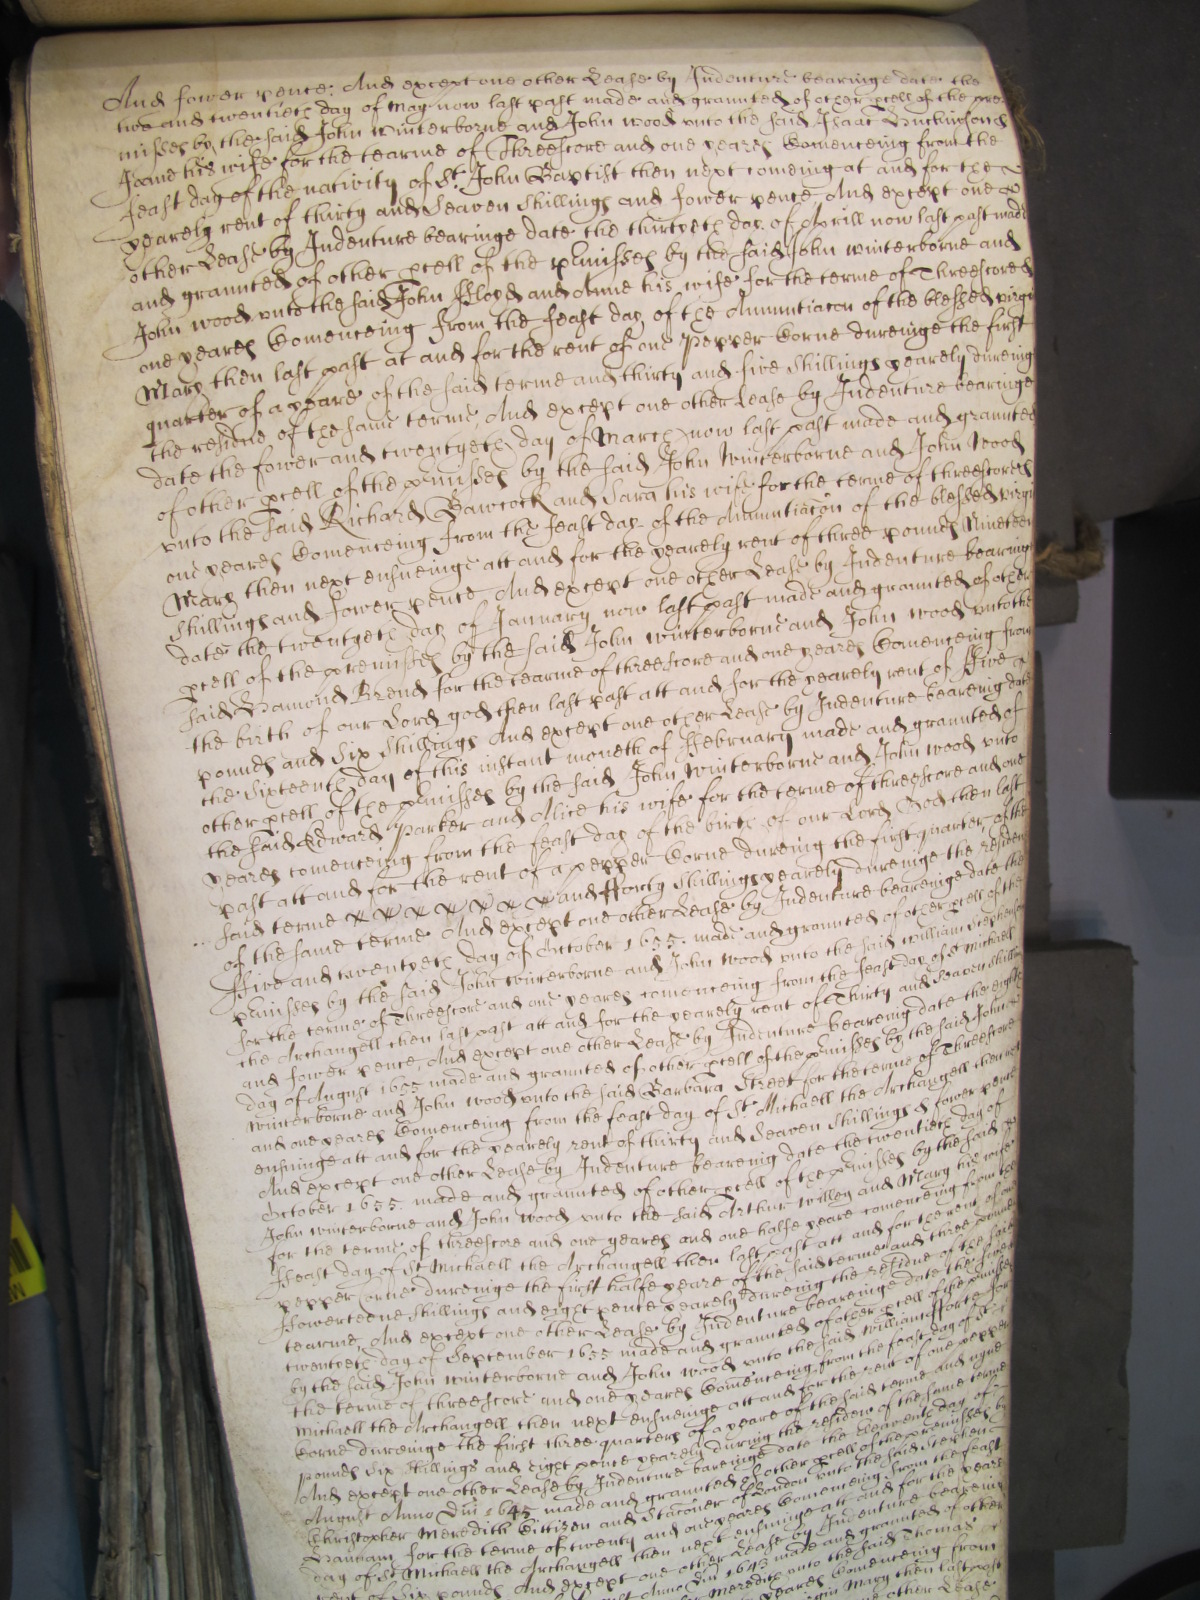 And fower pence, And except one other Lease by Indenture bearinge date the
two and twentieth day of May now last past made and graunted of other pcell of the pre
misses by the said John Winterborne and John Wood unto the said Isaac
his wife for the tearme of Threescore and one yeares Comenceing from the
feast day of the nativity of St. John Baptist then next comeing at and for the
yearely rent of thirty and Seaven Shillings and fower pence, And except one
other Lease by Indenture bearinge date the thirtyeth day of Aprill now last past made
and graunted of other pcell of the pmisses by the said John Winterborne and
John Wood unto the said John Floyd and Anne his wife for the terme of Threescore &
one yeares Comenceing from the feast day of the Annuntiacon of the blessed virgin
Mary then last past at and for the rent of one Pepper Corne dureinge the first
quarter of a yeare of the said terme and thirty and five Shillings yearely dureing
the residue of the same terme, And except one other Lease by Indenture bearinge
date the fower and twentyeth day of March now last past made and graunted
of other pcell of the pmisses by the said John Winterborne and John Wood
unto the said Richard Bawcock and Sara his wife for the terme of threescore &
one yeares Comenceing from the feast day of the Annuntiacon of the blessed virgin
Mary then next ensueinge att and for the yearely rent of three pounds Nineteen
Shillings and fower pence, And except one other Lease by Indenture bearing
date the twentyeth day of January now last past made and graunted of other
pcell of the premisses by the said John Winterborne and John Wood unto the
said Hamond Brend for the tearme of threescore and one yeares Comenceing from
the birth of our Lord god then last past att and for the yearely rent of Five
pounds and Six Shillings And except one other Lease by Indenture beareing date
the Sixteenth day of this instant moneth of February made and graunted of
other pcell of the pmisses by the said John Winterborne and John Wood unto
the said Edward Parker and Alice his wife for the terme of threescore and one
yeares comenceing from the feast day of the birth of our Lord God then last
past att and for the rent of a pepper Corne dureing the first quarter of the
said terme and Forty Shillings yearely dureinge the residue
of the same terme And except one other Lease by Indenture beareinge date the
Five and twentyeth day of October 1655. made and graunted of other pcell of the
pmisses by the said John Winterborne and John Wood unto the said William Stephenson
for the terme of Threescore and one yeares comenceing from the feast day of St Michaell
the Archangell then last past att and for the yearely rent of Thirty and Seaven Shillings
and fower pence, And except one other Lease by Indenture beareing date the eighth
day of August 1655 made and graunted of other pcell of the pmisses by the said John
Winterborne and John Wood unto the said Barbara Street for the terme of Threescore
and one yeares Comenceing from the feast day of St. Michaell the Archangell then next
ensuinge att and for the yearely rent of thirty and Seaven Shillings & fower pence
And except one other Lease by Indenture beareing date the twentieth day of
October 1655. made and graunted of other pcell of the pmisses by the said
John Winterborne and John Wood unto the said Arthur Willey and Mary his wife
for the terme of threescore and one yeares and one halfe yeare comenceing from the
Feast day of St Michaell the Archangell then last past att and for the rent of one
pepper Corne dureinge the first halfe yeare of the said terme and three pounds
Fowerteene Shillings and eight pence yearely dureing the residue of the said
tearme, And except one other Lease by Indenture beareinge date the five &
twentyeth day of September 1655 made and graunted of other pcell of the pmisses
by the said John Winterborne and John Wood unto the said William for
the terme of threescore and one yeares Comenceing from the feast day of St
Michaell the Archangell then next ensueinge att and for the rent of one pepper
Corne dureinge the first three quarters of a yeare of the said terme and
pounds Six Shillings and eight pence yearely during the residew of the same terme
And except one other Lease by Indenture bareinge date the Eleaventh day of
August Anno Dni 1645 made and graunted of other pcell of the premisses by
Christopher Meredith Cittizen and Staconer of London unto the said Stephen
for the terme of twenty and one yeares Comenceing from the feast
day of St Michaell the Archangell then next ensuinge att and for the yeare
rent of Six pounds And except one other Lease by Indenture beareing
Anno Dni 1643 made and graunted of other
Meredith unto the said Thomas
yeares Comenceing from
virgin Mary then last past
one other Lease